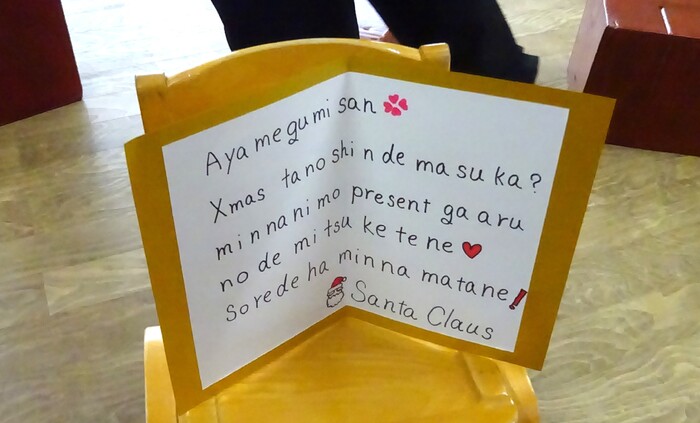 Ayamegumi san
Xmas tanoshindemasuka?
minnanimo present ga aru
node mitsuketene
Soredeha minna matane!
Santa Claus